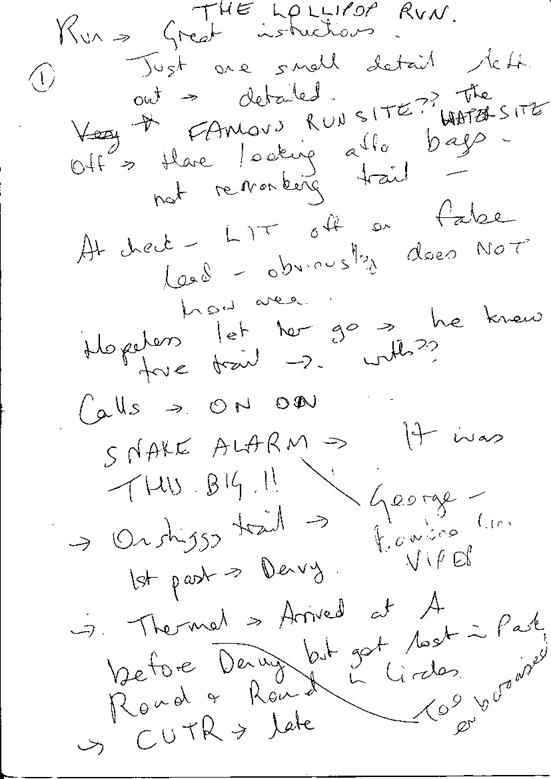 THE LOLLIPOP RUN.
Run → Great istructions.
① Just one small detail left
out → detailed.
Very FAMOUS RUNSITE?? The
WATER SITE
Off → Hare looking after bags -
not remarking trail -
At check - LIT off on false
lead - obviously does NOT
know area.
Hopeless let her go → he knew
true trail →. with??
Calls → ON ON
SNAKE ALARM → It was
THIS BIG!!
George -
VIPER
→ trail →
1st past → Denvy.
→. Thermal → Arrived at A
before Denvy but got lost in Park
Round & Round in Circles
Too
embarrased
→ CUTR → late